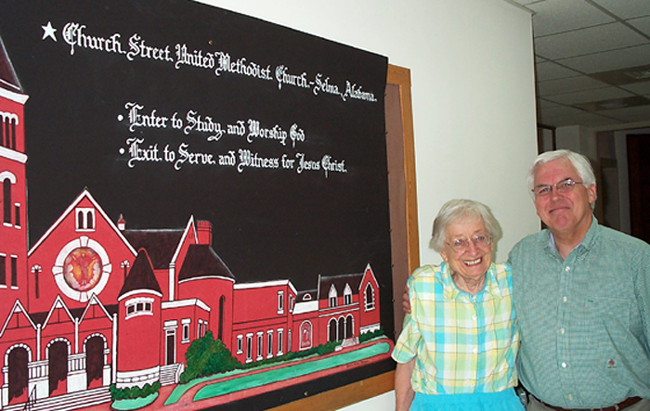 Church Street United Methodist Church - Selma, Alabama
• Enter to Study and Worship God
• Exit to Serve and Witness for Jesus Christ.